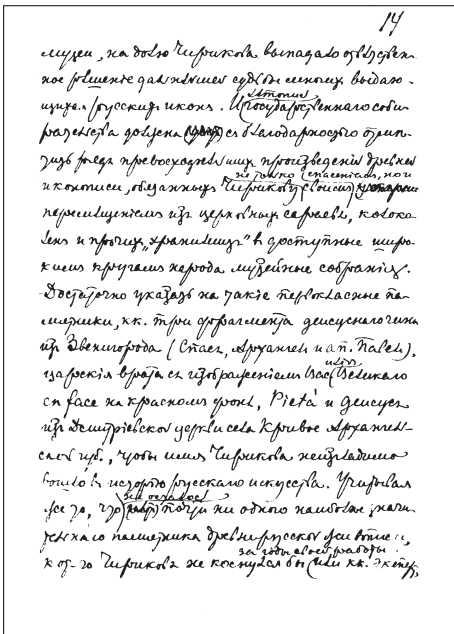 14
музеи, на долю Чирикова выпадало отвѣтствен-
ное рѣшенiе дальнѣйшей судьбы многих выдаю-
щихся русских икон. Исторiя государственнаго соби-
рательства должна съ благодарностью отмѣ-
тить рядъ превосходнѣйших произведенiй древней
иконописи, обязанных Чирикову не только спасенiем, но и
своим перемѣщенiем из церковных сараевъ, колоко-
лен и прочих „хранилищъ" в доступные широ-
ким кругам народа музейные собранiя.
Достаточно указать на такiе первоклассные па-
мятники, кк. три фрагмента деисуснаго чина
из Звенигорода (Спасъ, Архангелъ и ап. Павелъ),
царскiя врата съ изображенiем Вас. Великаго
en face на красном фонѣ, Pietà и деисусъ
из Дмитрiевской церкви села Кривое Архангель-
ской губ., чтобы имя Чирикова неизгладимо
вошло в исторiю русскаго искусства. Учитывая
все то, что не осталось почти ни одного наиболѣе значи-
тельнаго памятника древнерусской живописи,
к от-го Чириковъ не коснулся бы за годы своей работы (или кк.